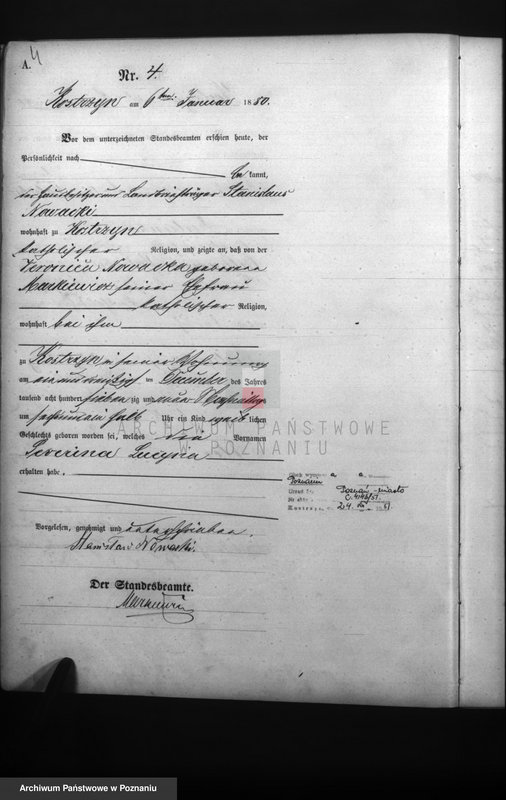 A.
4
Nr. 4.
Kostrzyn am 6ten Januar 1880.
Vor dem unterzeichneten Standesbeamten erschien heute, der
Persönlichkeit nach
be kannt,
der Hausbesitzer und Landbriefträger Stanislaus
Nowacki
wohnhaft zu Kostrzyn
katholischer Religion, und zeigte an, daß von der
Veronica Nowacka geborene
Markiewicz seiner Ehefrau
katholischer Religion,
wohnhaft bei ihm
zu Kostrzyn in seiner Wohnung
am ein und dreißig ten December des Jahres
tausend acht hundert sieben zig und neun Nachmittags
um halb Uhr ein Kind weib lichen
Geschlechts geboren worden sei, welches die Vornamen
Severina Lucyna
erhalten habe.
Vorgelesen, genehmigt und unterschrieben.
Stanisław Nowacki.
Der Standesbeamte.
Poznaniu
Poznań-miasto
ARCHIWUM PAŃSTWOWE
W POZNANIU
Archiwum Państwowe w Poznaniu